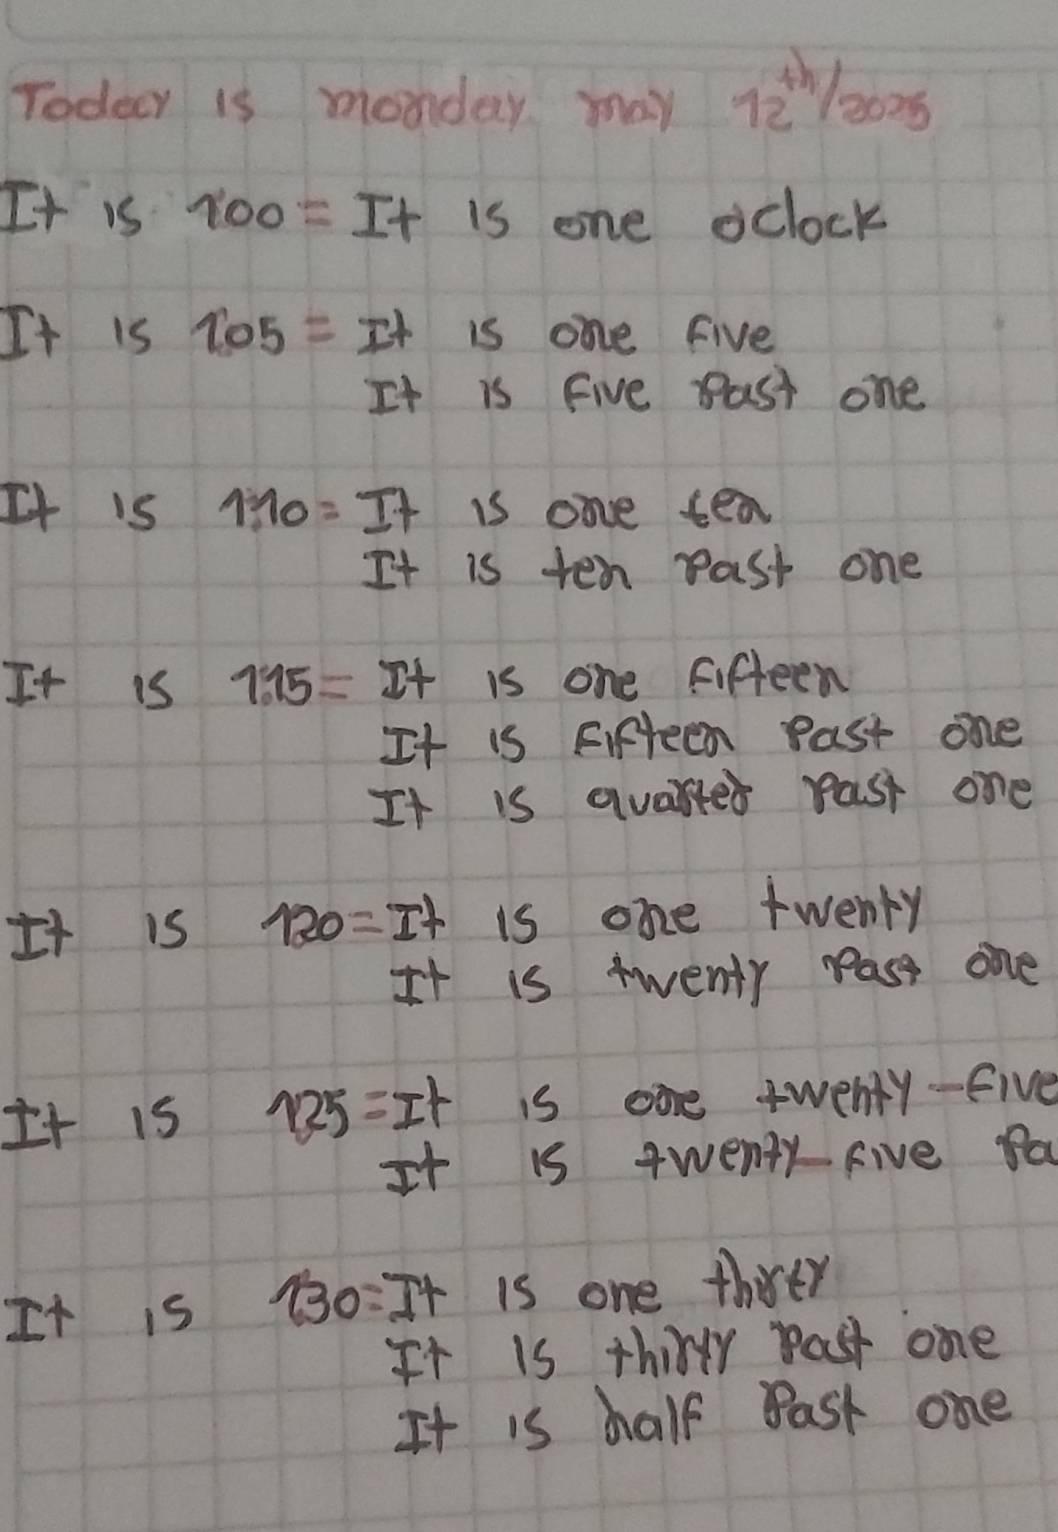 Today is monday may 12th/2025
It is 1:00 = It is one oclock
It is 1:05 = It is one five
It is five past one
It is 1:10 = It is one ten
It is ten past one
It is 1:15 = It is one fifteen
It is fifteen past one
It is quarter past one
It is 1:20 = It is one twenty
It is twenty past one
It is 1:25 = It is one twenty-five
It is twenty-five Pa
It is 1:30 = It is one thirty
It is thirty past one
It is half Past one